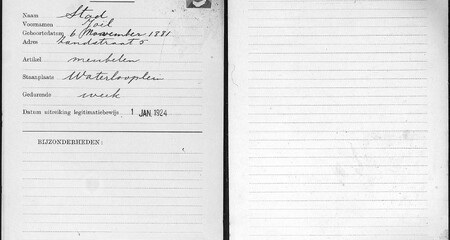 Naam Stad
Voornamen Joël
Geboortedatum 6 November 1881
Adres Zandstraat 5
Artikel meubelen
Staanplaats Waterlooplein
Gedurende week
Datum uitreiking legitimatiebewijs 1 JAN. 1924
BIJZONDERHEDEN: